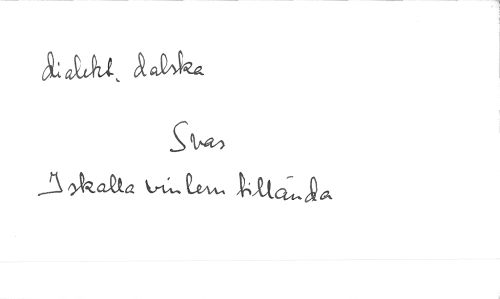 dialekt. dalska
Svar
Iskalla vintern tillända